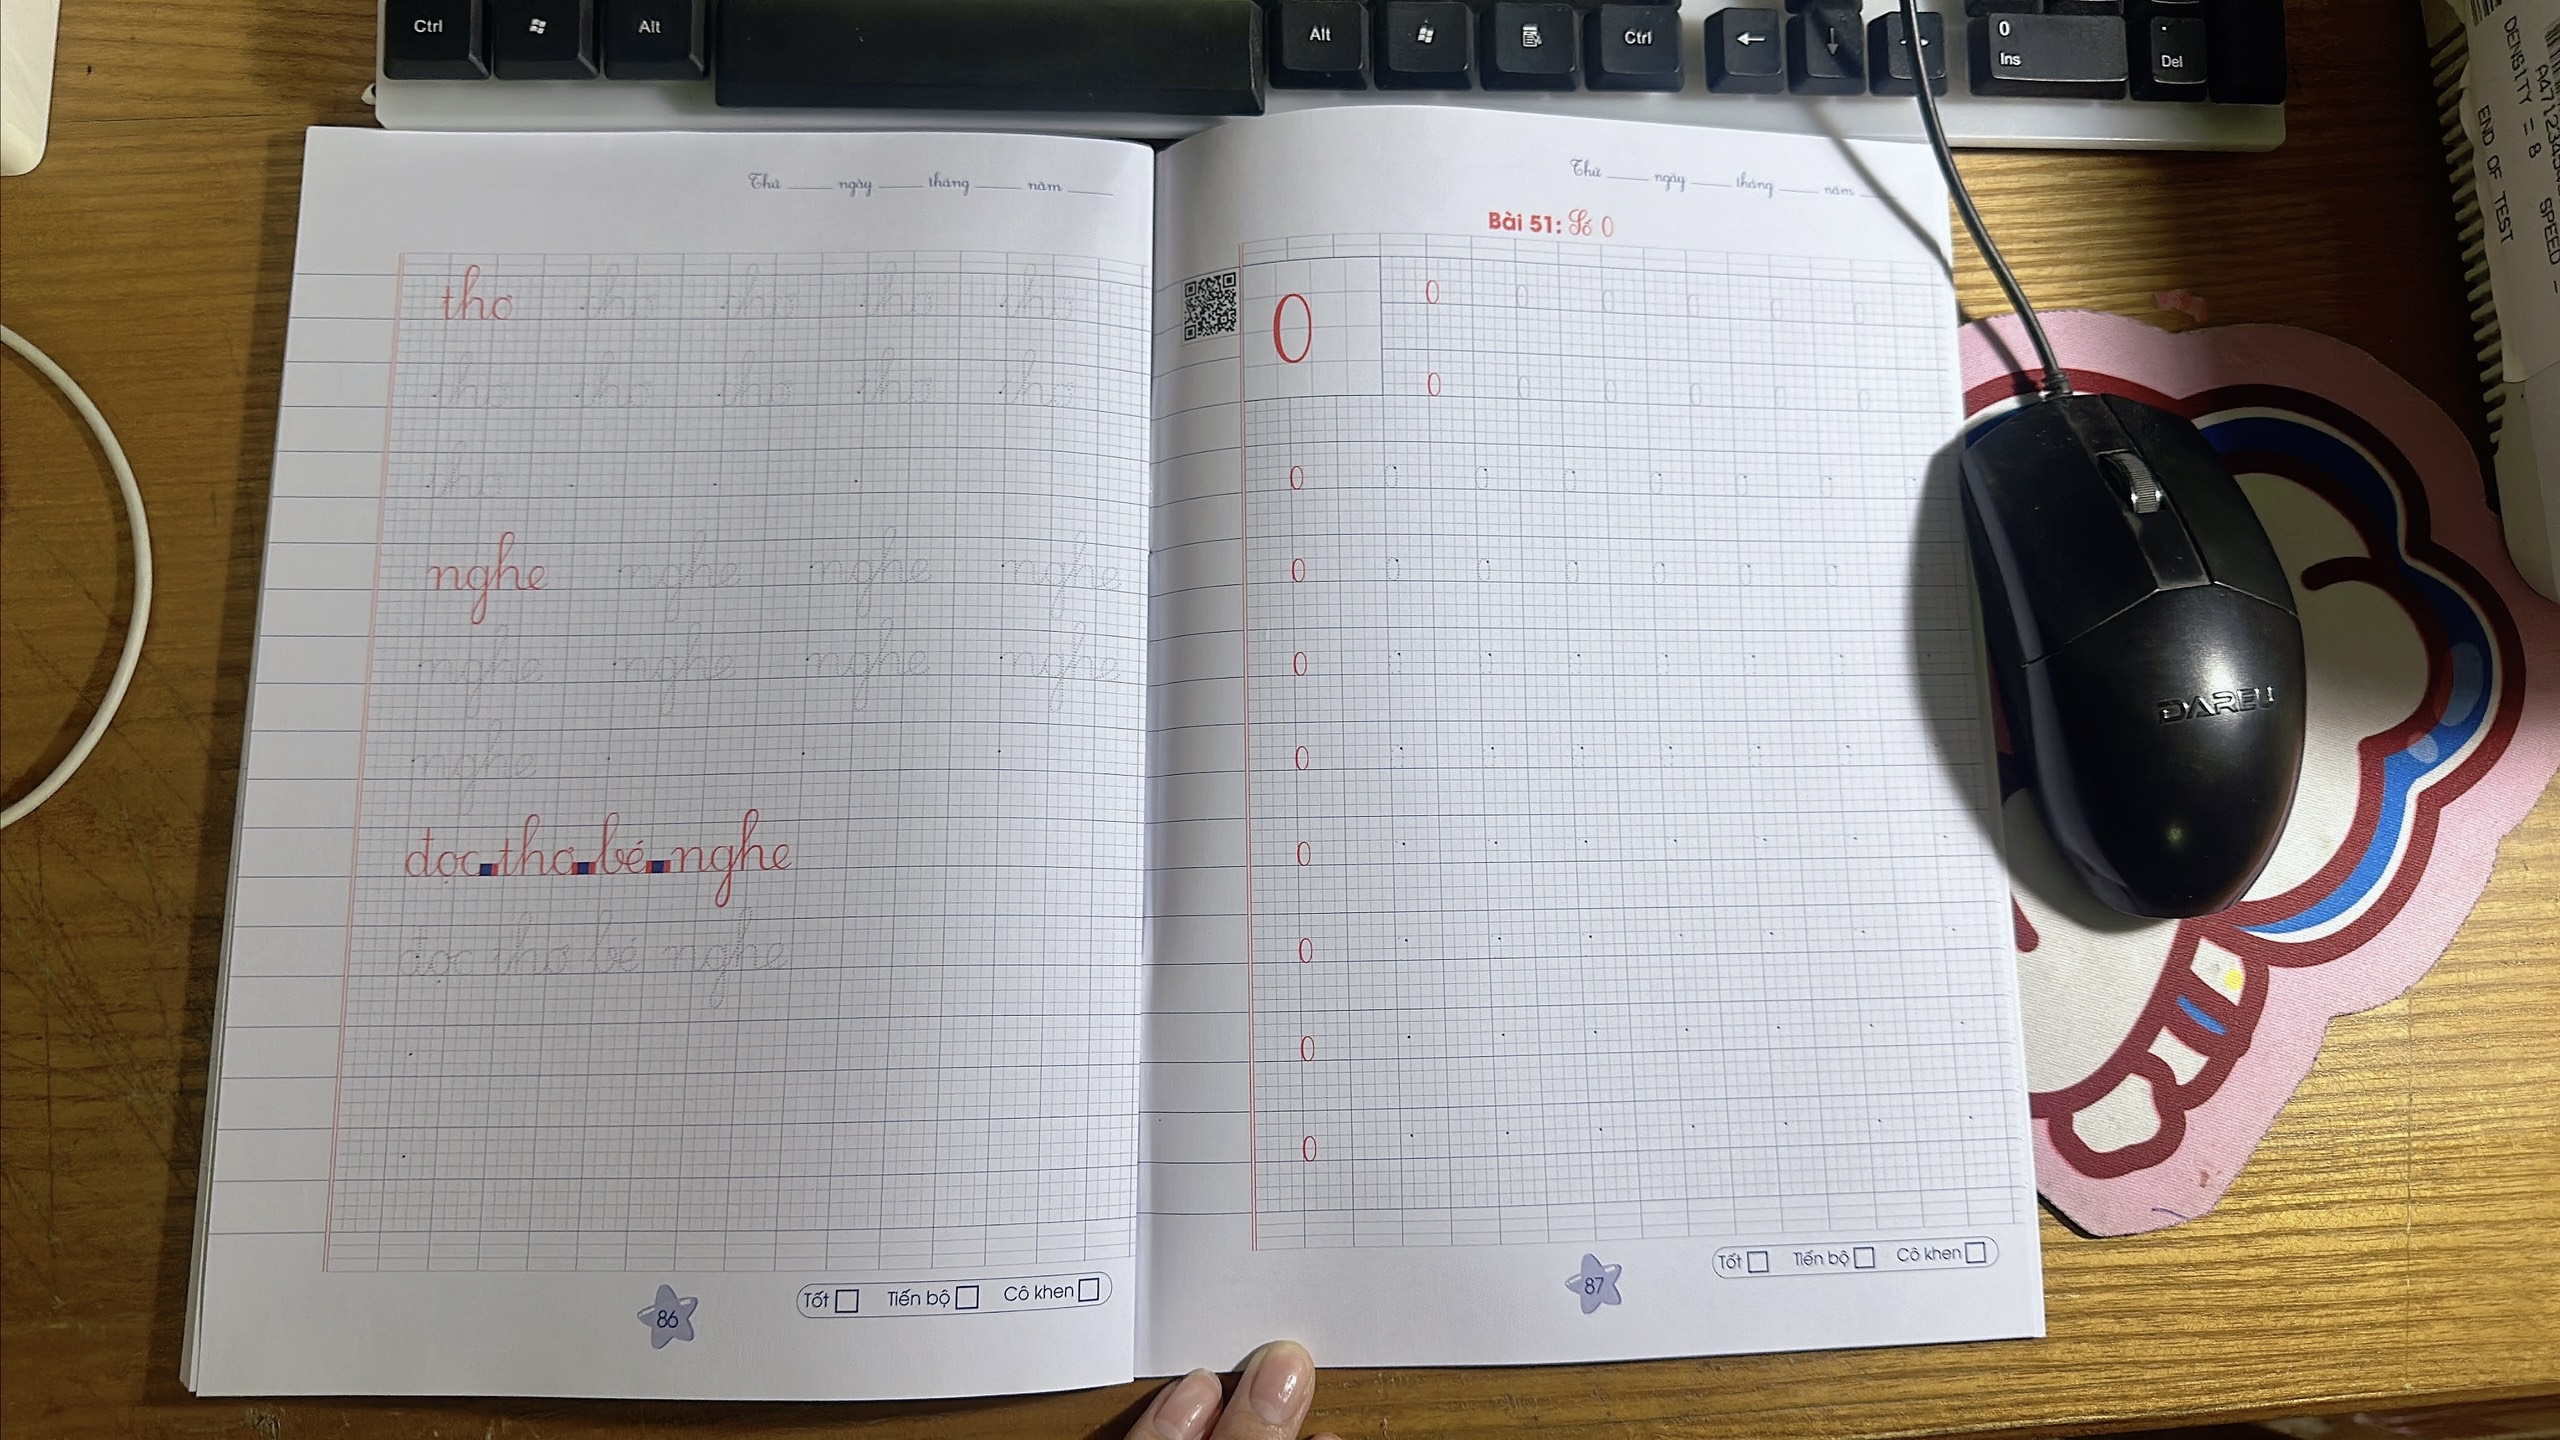 Ctrl Alt Alt Ctrl 0 Ins . Del
DENSITY = 8 SPEED -
END OF TEST
Thứ ____ ngày ____ tháng ____ năm ____
tho tho tho tho tho
tho tho tho tho tho
tho
nghe nghe nghe nghe
nghe nghe nghe nghe
nghe
đọc thơ bé nghe
đọc thơ bé nghe
86
Tốt Tiến bộ Cô khen
Thứ ____ ngày ____ tháng ____ năm ____
Bài 51: Số 0
0
0 0 0 0 0 0
0 0 0 0 0 0
0 0 0 0 0 0 0
0 0 0 0 0 0 0
0
0
0
0
0
0
87
Tốt Tiến bộ Cô khen
DAREU